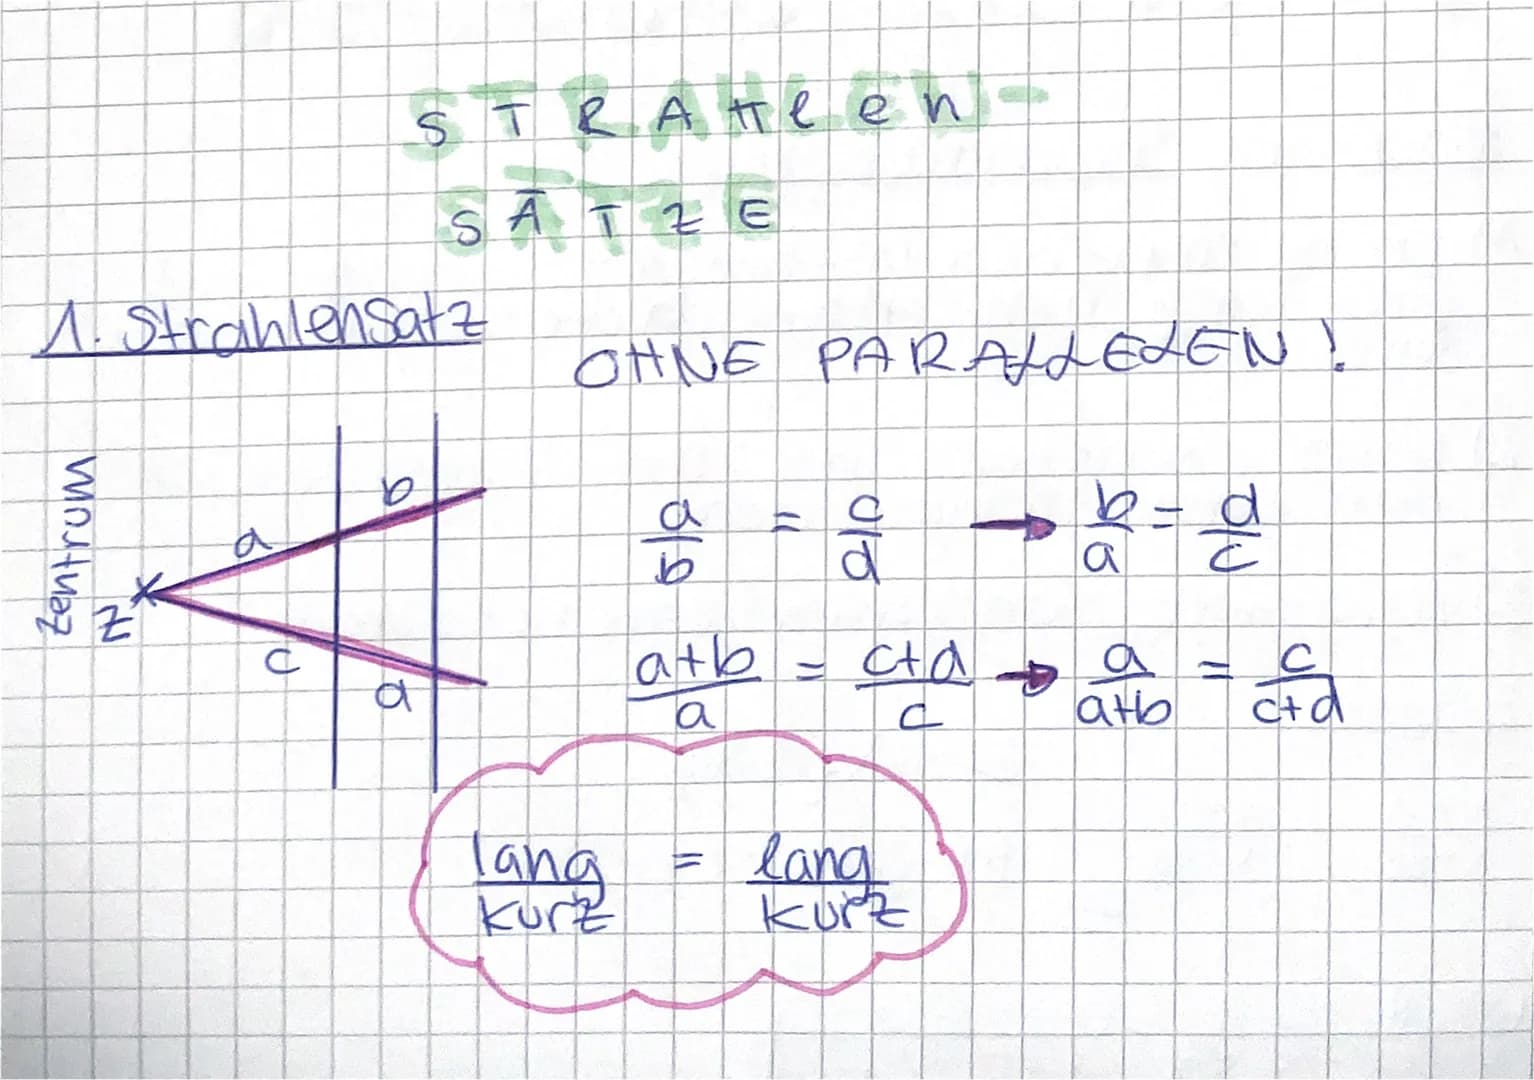 STRAHLEN-
SÄTZE
1. Strahlensatz
OHNE PARALLELEN!
Zentrum
Z
a
b
c
d
a/b = c/d → b/a = d/c
a+b/a = c+d/c → a/a+b = c/c+d
lang/kurz = lang/kurz